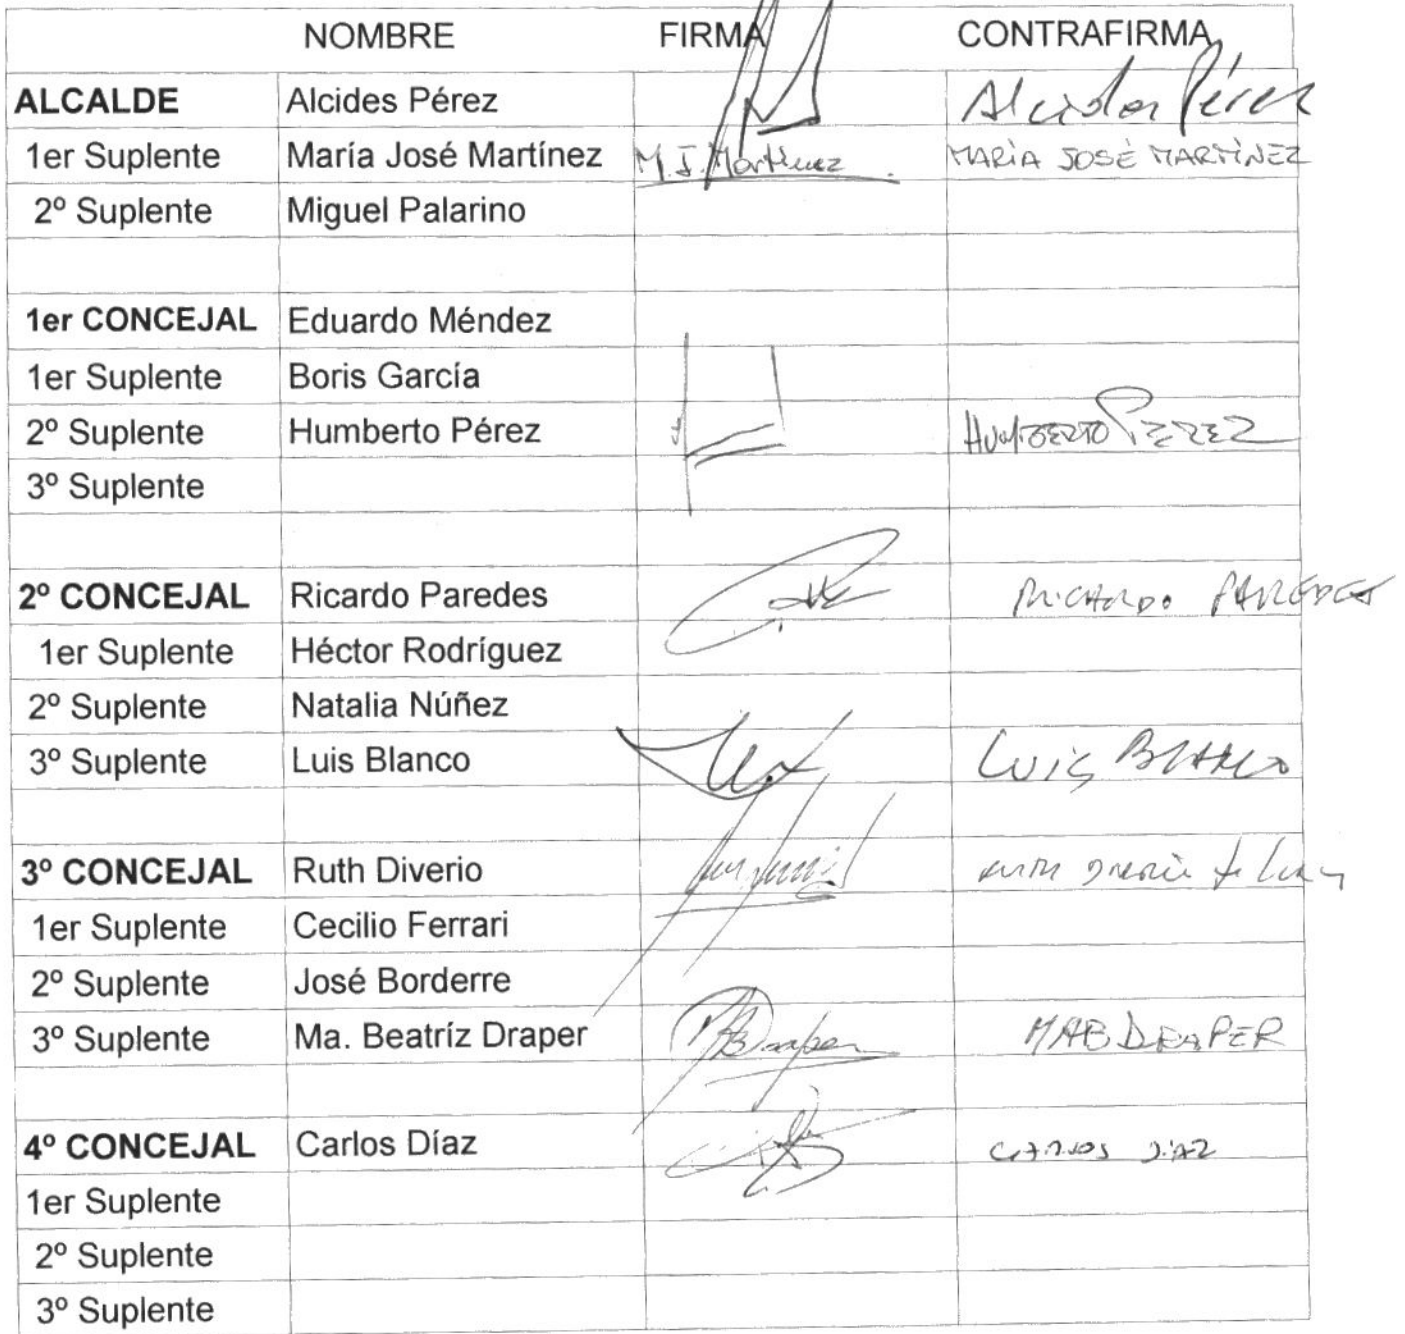 NOMBRE FIRMA CONTRAFIRMA
ALCALDE Alcides Pérez Alcides Pérez
1er Suplente María José Martínez M.J. Martínez MARÍA JOSÉ MARTÍNEZ
2º Suplente Miguel Palarino
1er CONCEJAL Eduardo Méndez
1er Suplente Boris García
2º Suplente Humberto Pérez HUMBERTO PEREZ
3º Suplente
2º CONCEJAL Ricardo Paredes RICARDO PAREDES
1er Suplente Héctor Rodríguez
2º Suplente Natalia Núñez
3º Suplente Luis Blanco LUIS BLANCO
3º CONCEJAL Ruth Diverio
1er Suplente Cecilio Ferrari
2º Suplente José Borderre
3º Suplente Ma. Beatríz Draper MAB Draper MAB DRAPER
4º CONCEJAL Carlos Díaz CARLOS DIAZ
1er Suplente
2º Suplente
3º Suplente